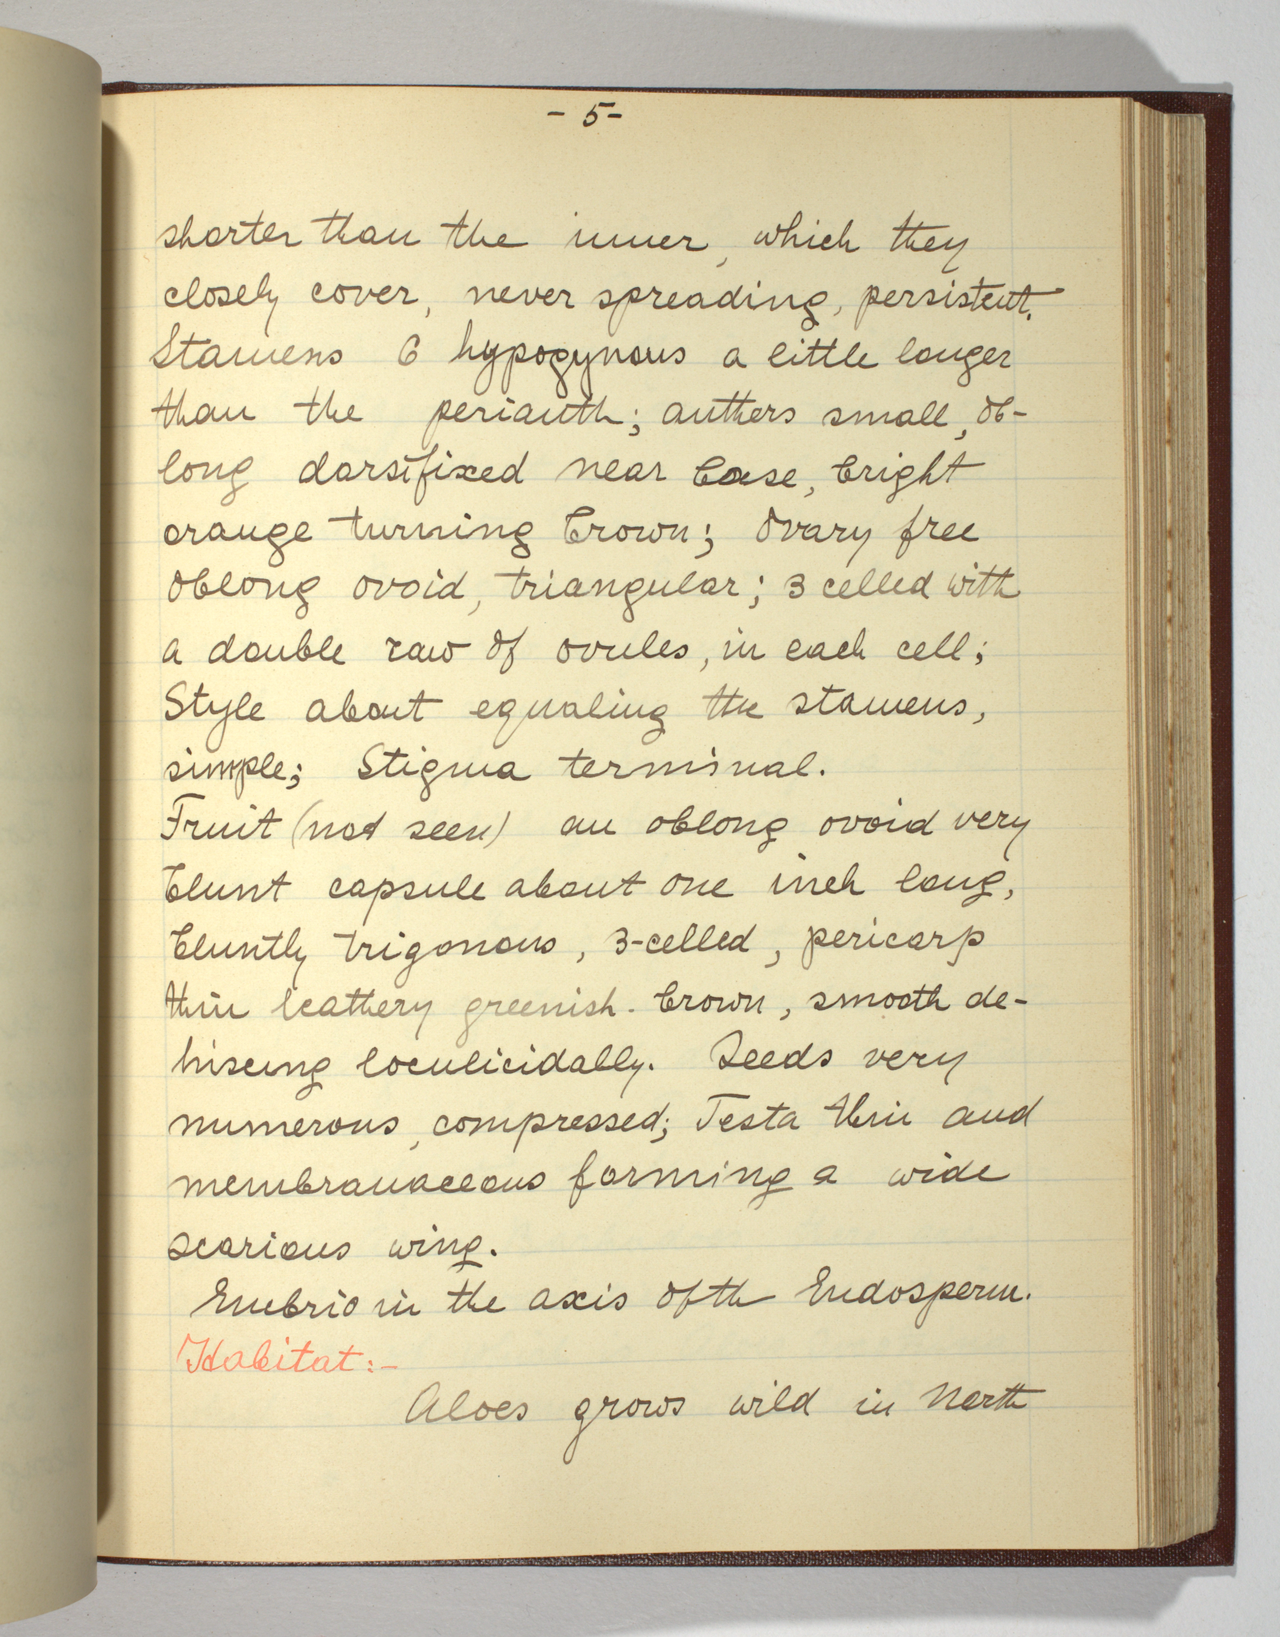 - 5 -
shorter than the inner, which they
closely cover, never spreading, persistent.
Stamens 6 hypogynous a little longer
than the perianth; anthers small, ob-
long dorsifixed near base, bright
orange turning brown; Ovary free
oblong ovoid, triangular; 3 celled with
a double row of ovules, in each cell;
Style about equaling the stamens,
simple; Stigma terminal.
Fruit (not seen) an oblong ovoid very
blunt capsule about one inch long,
bluntly trigonous, 3-celled, pericarp
thin leathery greenish-brown, smooth de-
hiscing loculicidally. Seeds very
numerous, compressed; Testa thin and
membranaceous forming a wide
scarious wing.
Embrio in the axis of th Endosperm.
Habitat:-
Aloes grows wild in North